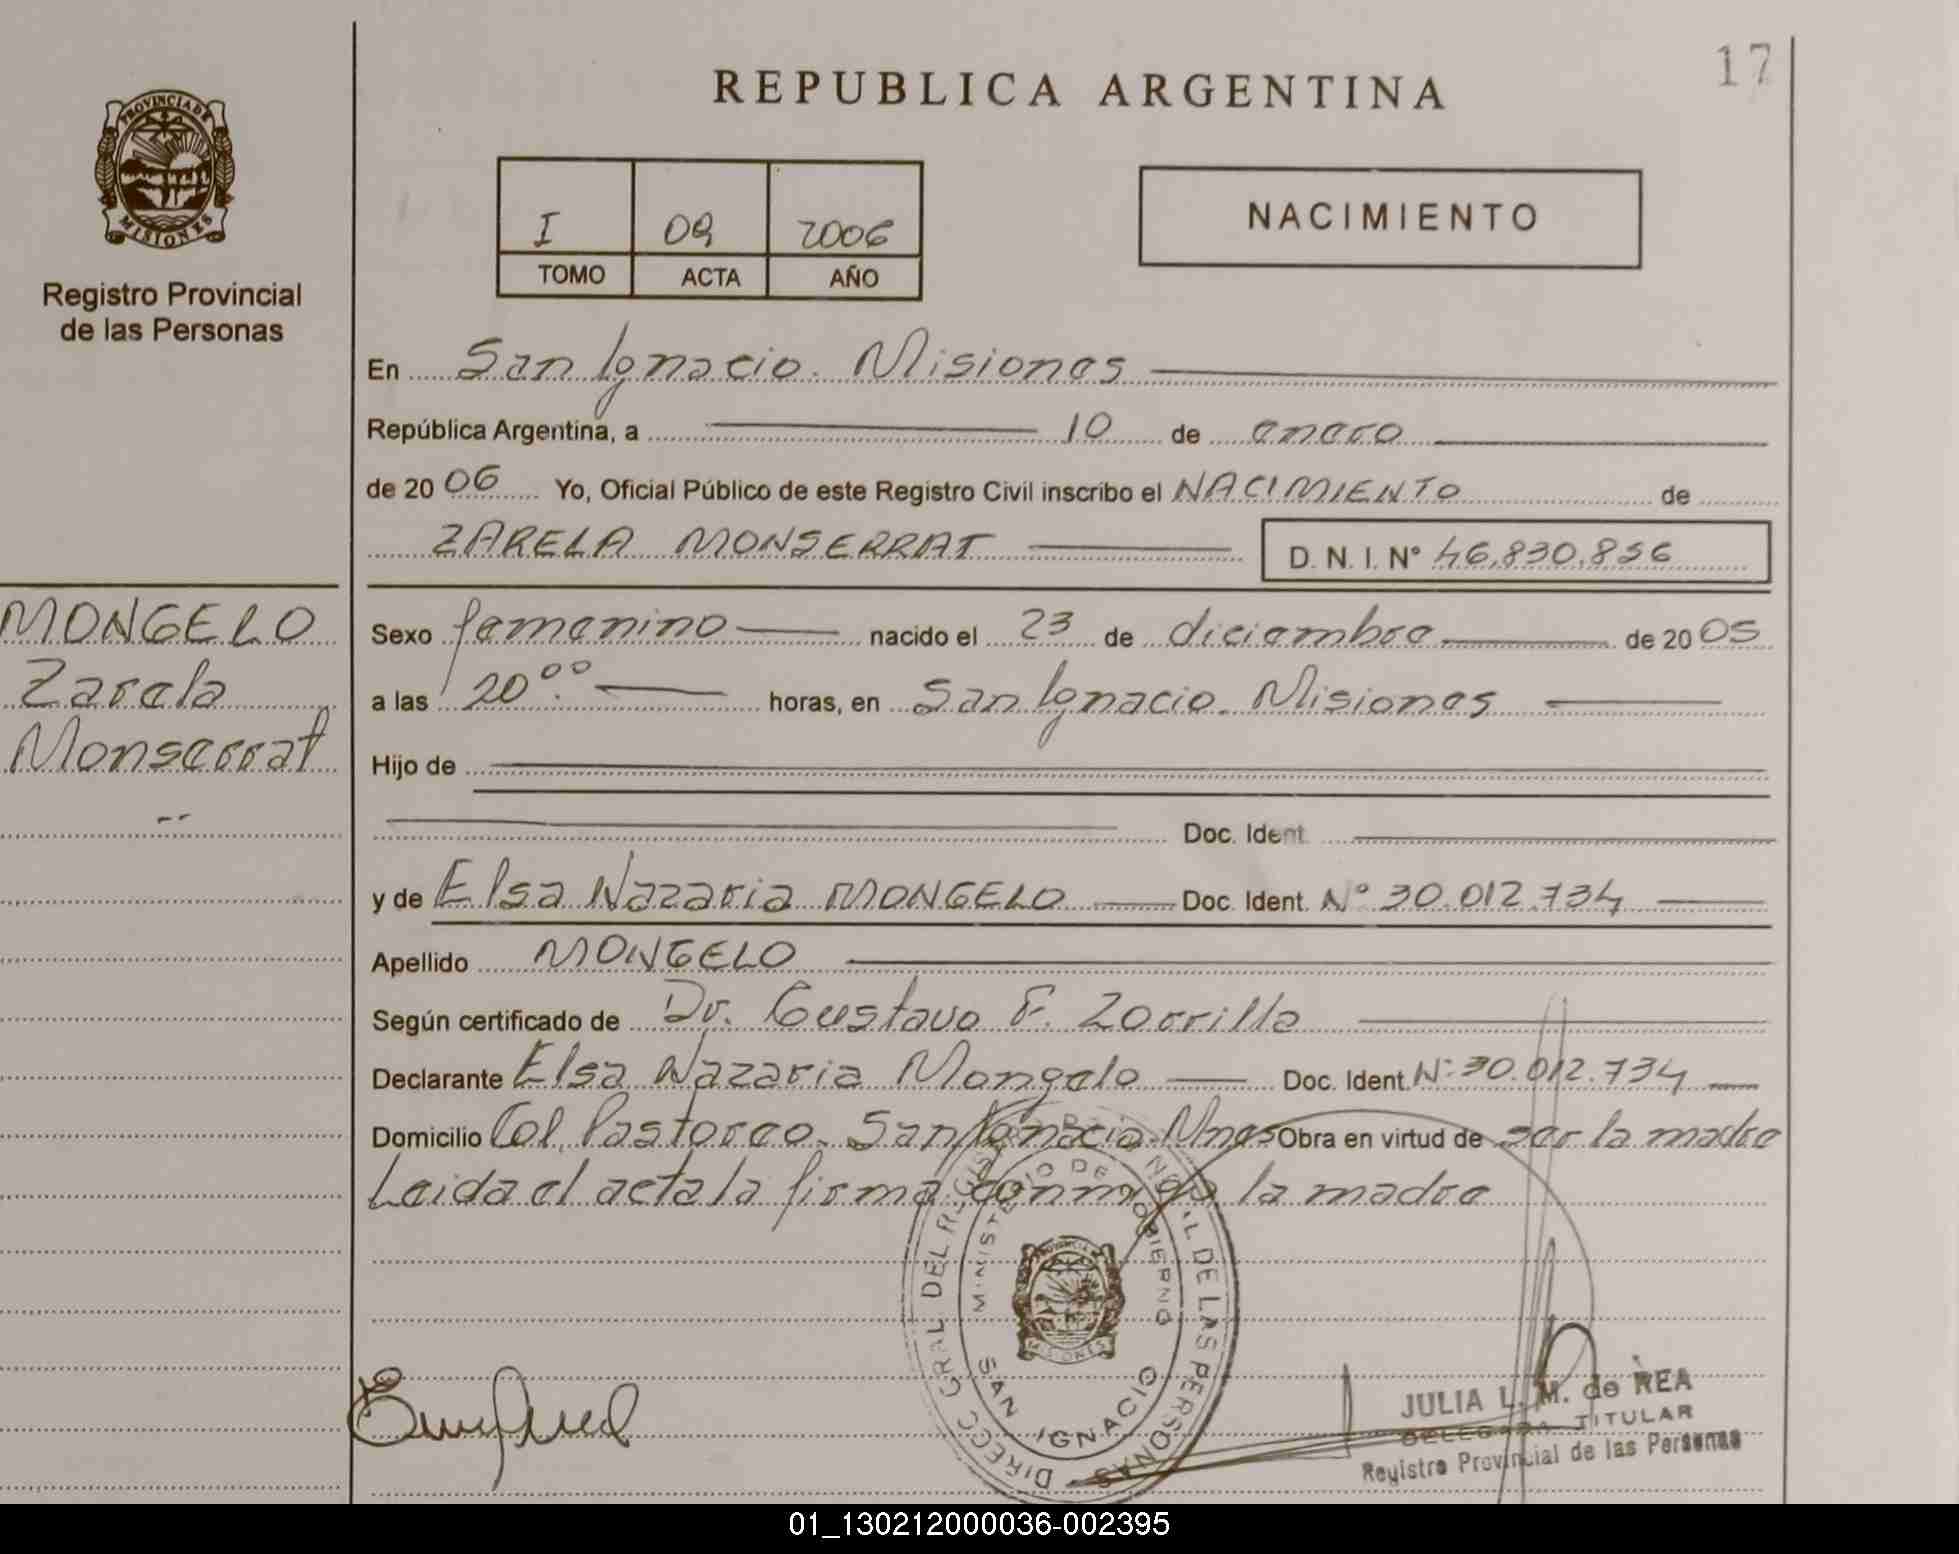 17
REPUBLICA ARGENTINA
PROVINCIA DE
MISIONES
Registro Provincial
de las Personas
I 09 2006
TOMO ACTA AÑO
NACIMIENTO
En San Ignacio. Misiones
República Argentina, a 10 de enero
de 2006 Yo, Oficial Público de este Registro Civil inscribo el NACIMIENTO de
ZARELA MONSERRAT D. N. I. N° 46.830.856
MONGELO
Zarela
Monserrat
Sexo femenino nacido el 23 de diciembre de 2005
a las 20°° horas, en San Ignacio. Misiones
Hijo de
Doc. Ident.
y de Elsa Nazaria MONGELO Doc. Ident. N° 30.012.734
Apellido MONGELO
Según certificado de Dr. Gustavo F. Zorrilla
Declarante Elsa Nazaria Mongelo Doc. Ident. N° 30.012.734
Domicilio Col. Pastoreo. San Ignacio. Mnes Obra en virtud de ser la madre
Leida el acta la firma conmigo la madre
DIRECC GRAL DEL REGISTRO PROVINCIAL DE LAS PERSONAS
MINISTERIO DE GOBIERNO
MISIONES
SAN IGNACIO
JULIA L. M. de REA
DELEGADA TITULAR
Registro Provincial de las Personas
01_130212000036-002395